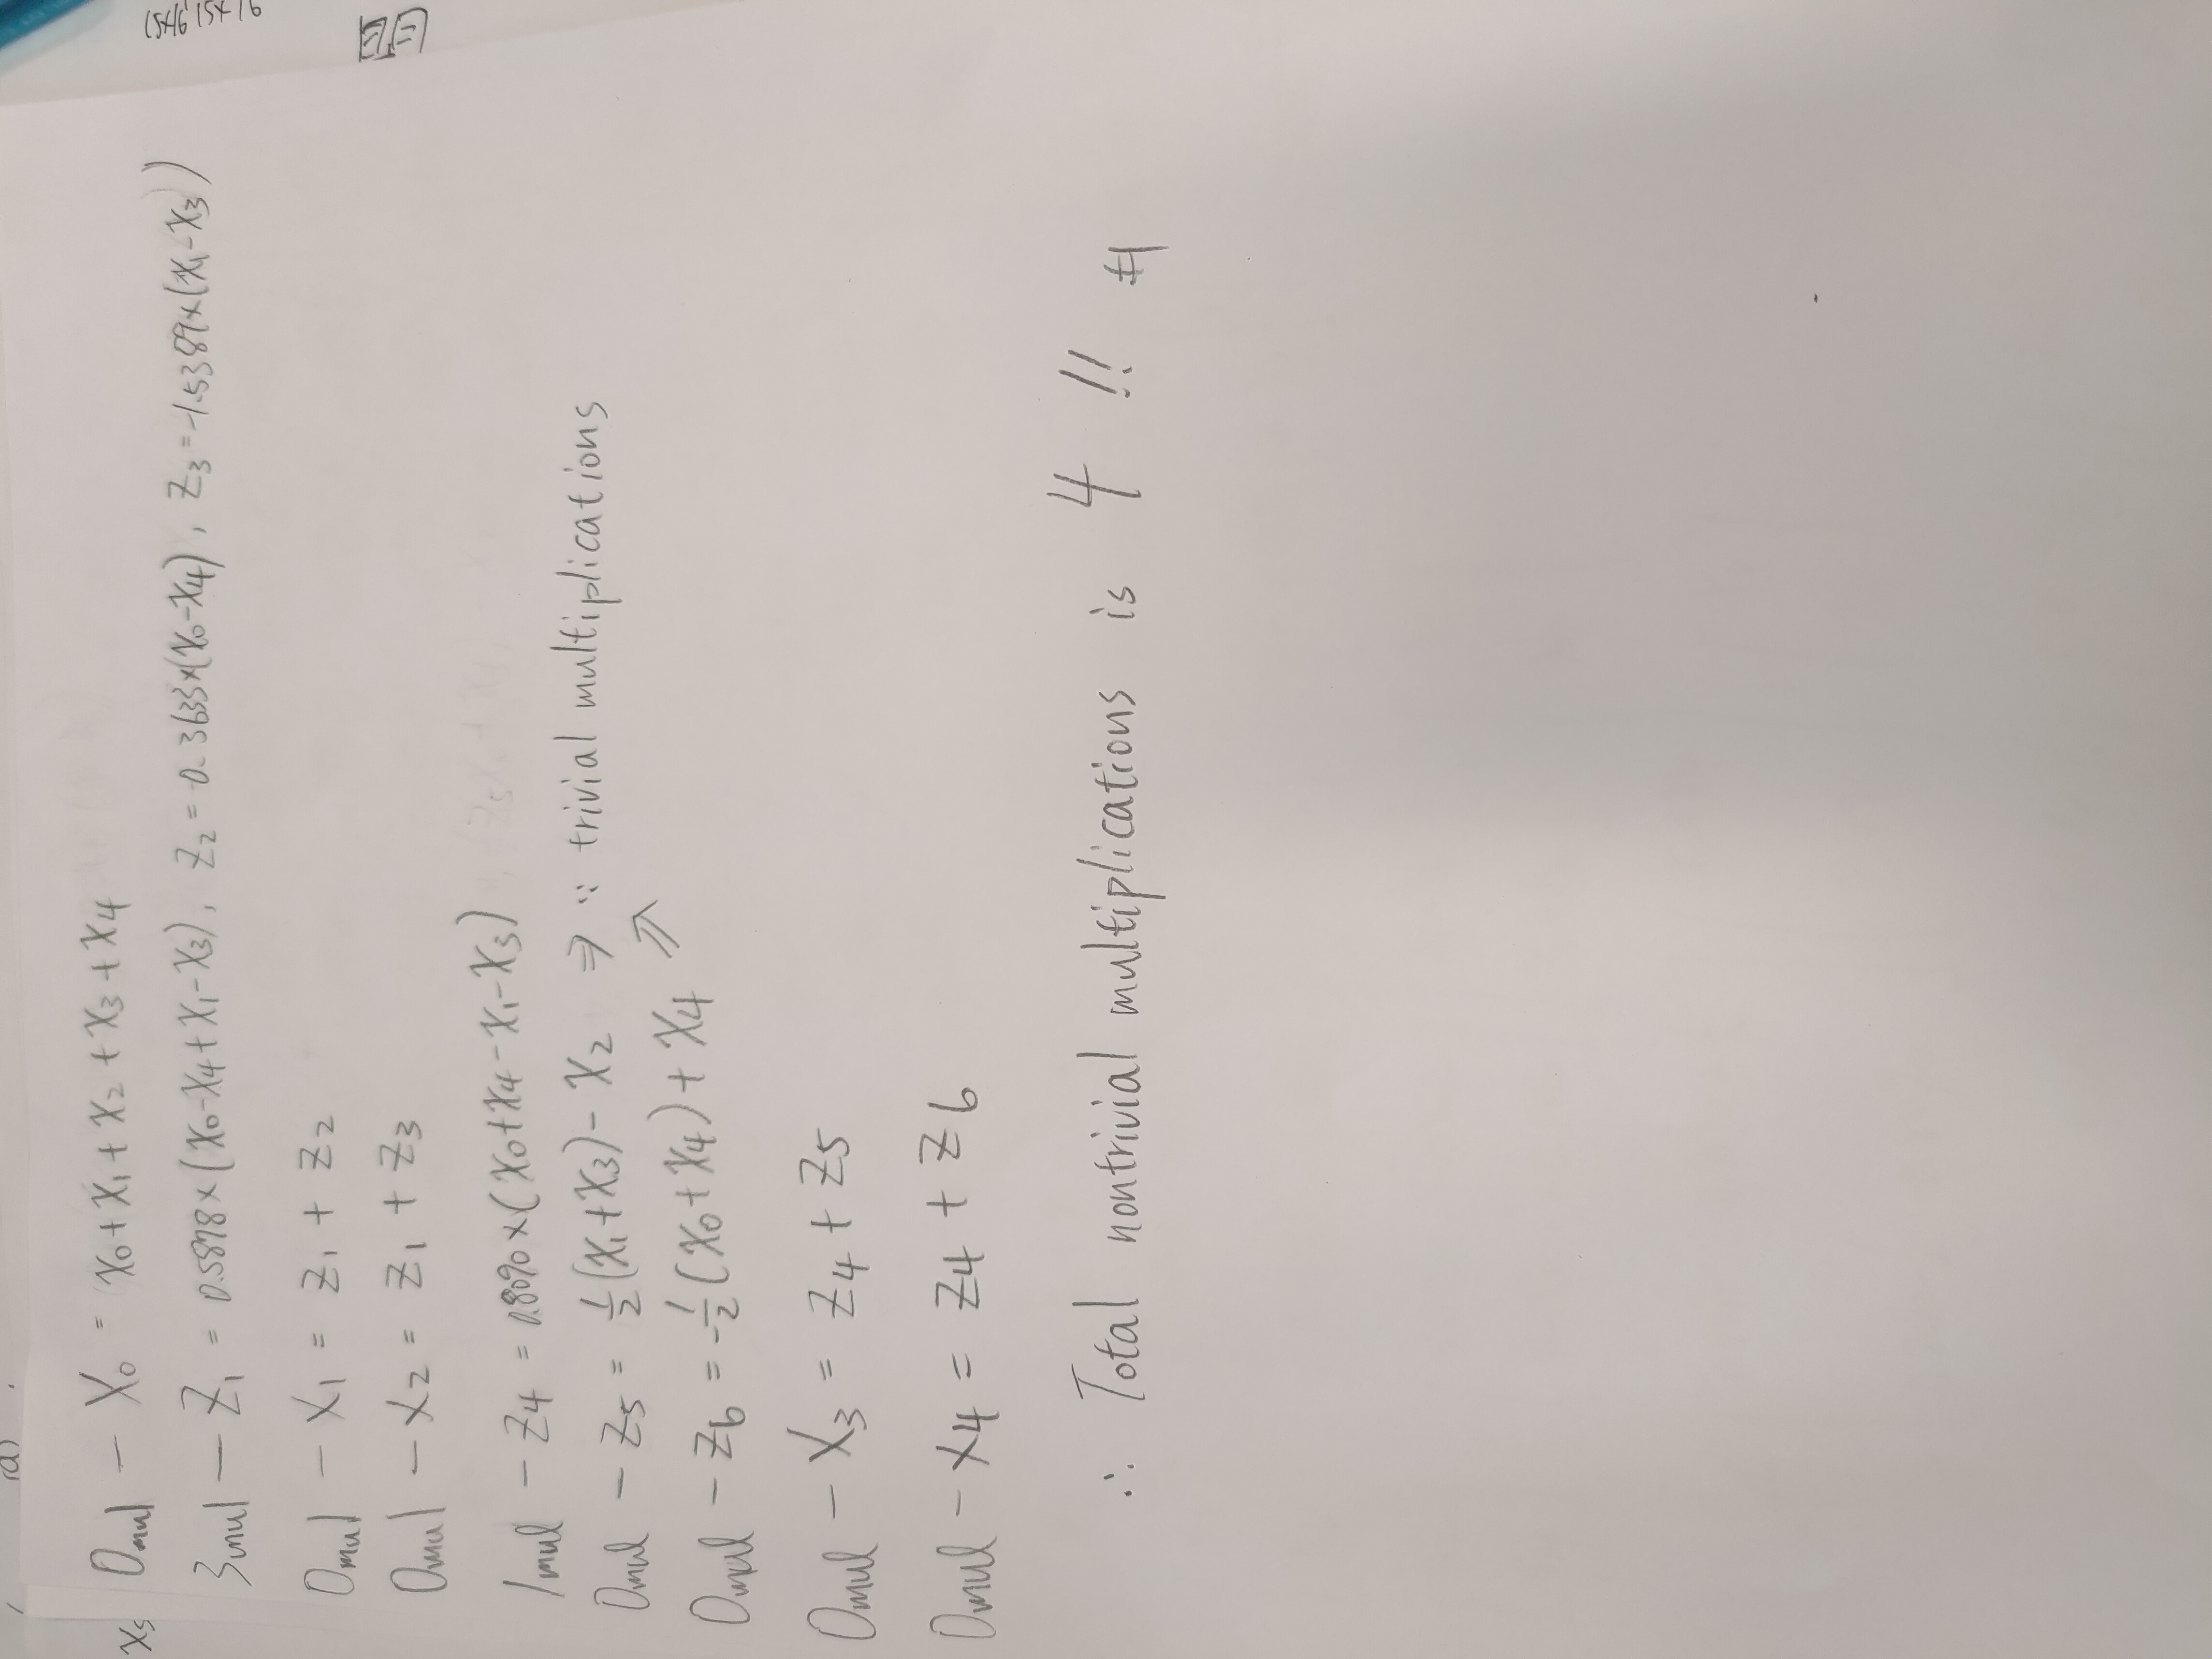 (a)
X5
0mul — X0 = x0 + x1 + x2 + x3 + x4
3mul — Z1 = 0.5878 × (x0 - x4 + x1 - x3), Z2 = 0.3633×(x0 - x4), Z3 = -1.5389×(x1 - x3)
0mul — X1 = Z1 + Z2
0mul — X2 = Z1 + Z3
1mul — Z4 = 0.8090 × (x0 + x4 - x1 - x3)
0mul — Z5 = 1/2 (x1 + x3) - x2 ⇒ ∵ trivial multiplications
0mul — Z6 = -1/2 (x0 + x4) + x4 ⇗
0mul — X3 = Z4 + Z5
0mul — X4 = Z4 + Z6
∴ Total nontrivial multiplications is 4 !! #